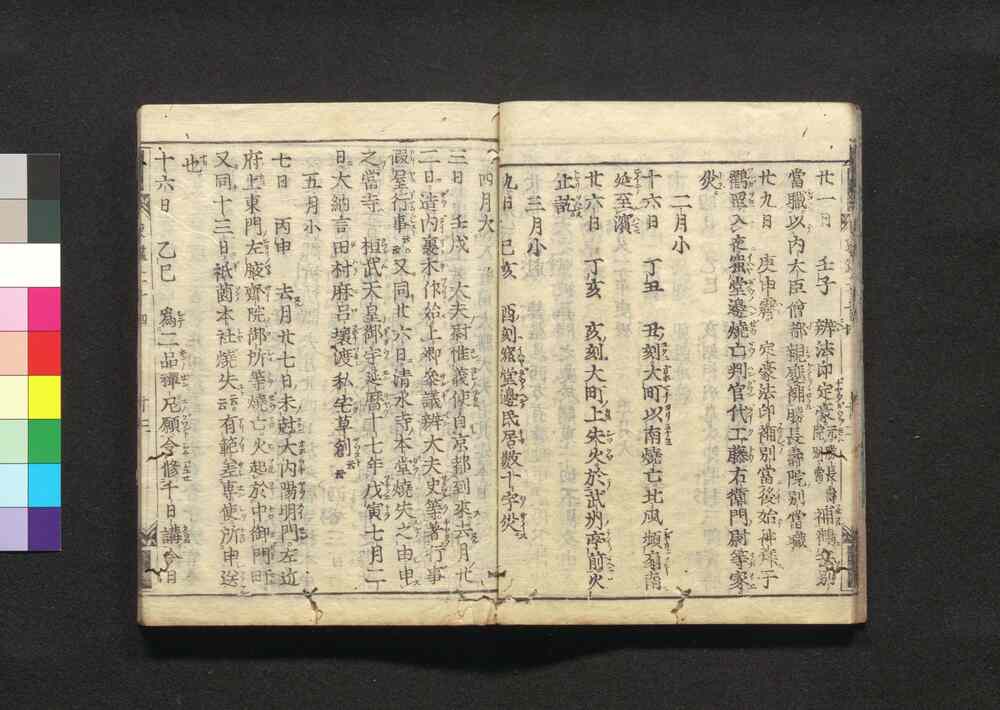 廿一日　壬子　辨法印定豪
當職以内大臣僧都親慶補勝長壽院別當職
廿九日　庚申霽　定豪法印補別當後始神拜子
鶴岡入夜窟堂邊燒亡判官代工藤右衛門尉等家
災
二月小
十六日　丁丑　丑刻大町以南燒亡北風頻扇南
延至濱
廿六日　丁亥　亥刻大町上失火於武州亭前火
止訖
三月小
九日　己亥　酉刻窟堂邊民居數十字災
四月大
三日　壬戌　大夫尉惟義使自京都到來去月廿
二日造内裏木作始上卿參議辨大夫史等著行事
假屋行事云云又同廿六日清水寺本堂燒失之由申
之當寺　桓武天皇御宇延曆十七年戊寅七月二
日大納言田村麻呂壞渡私宅草創云云
五月小
七日　丙申　去月廿七日未尅大内陽明門左近
府上東門左腋齋院御所等燒亡火起於中御門町
又同十三日祇園本社燒失云云有範差專使所申送
也
十六日　乙巳　爲二品禪尼願念修千日講今日